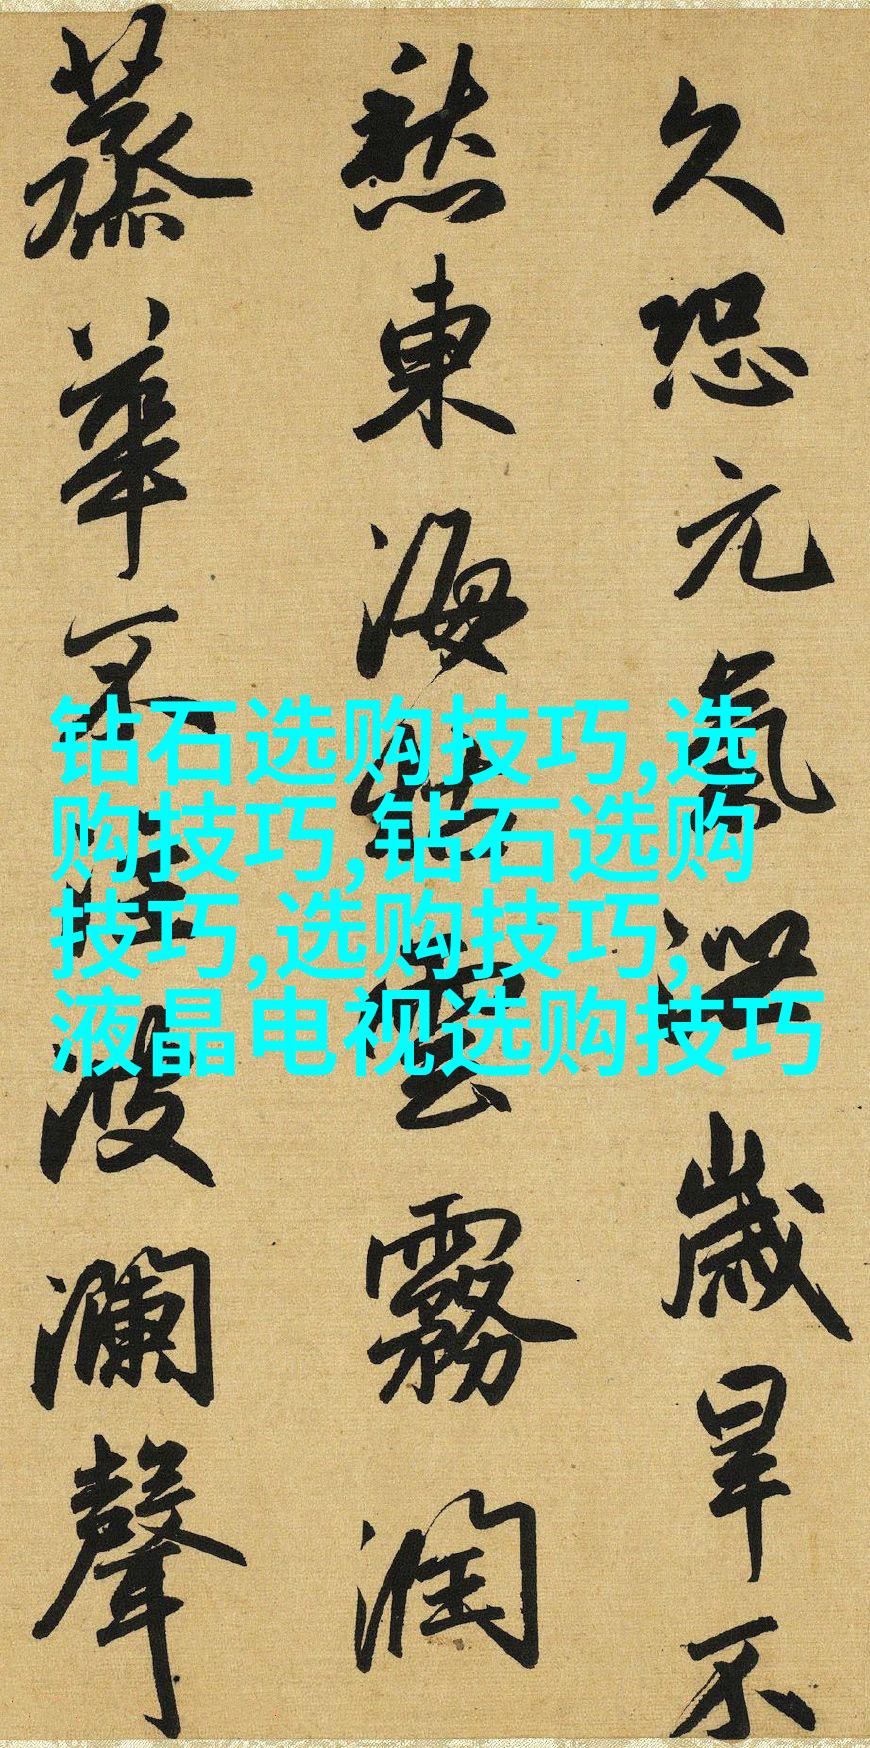 久恐元氣泄歲旱不
愁東海枯雲霧潤
蒸華不注波瀾聲
钻石选购技巧,选
购技巧,钻石选购
技巧,选购技巧,
液晶电视选购技巧